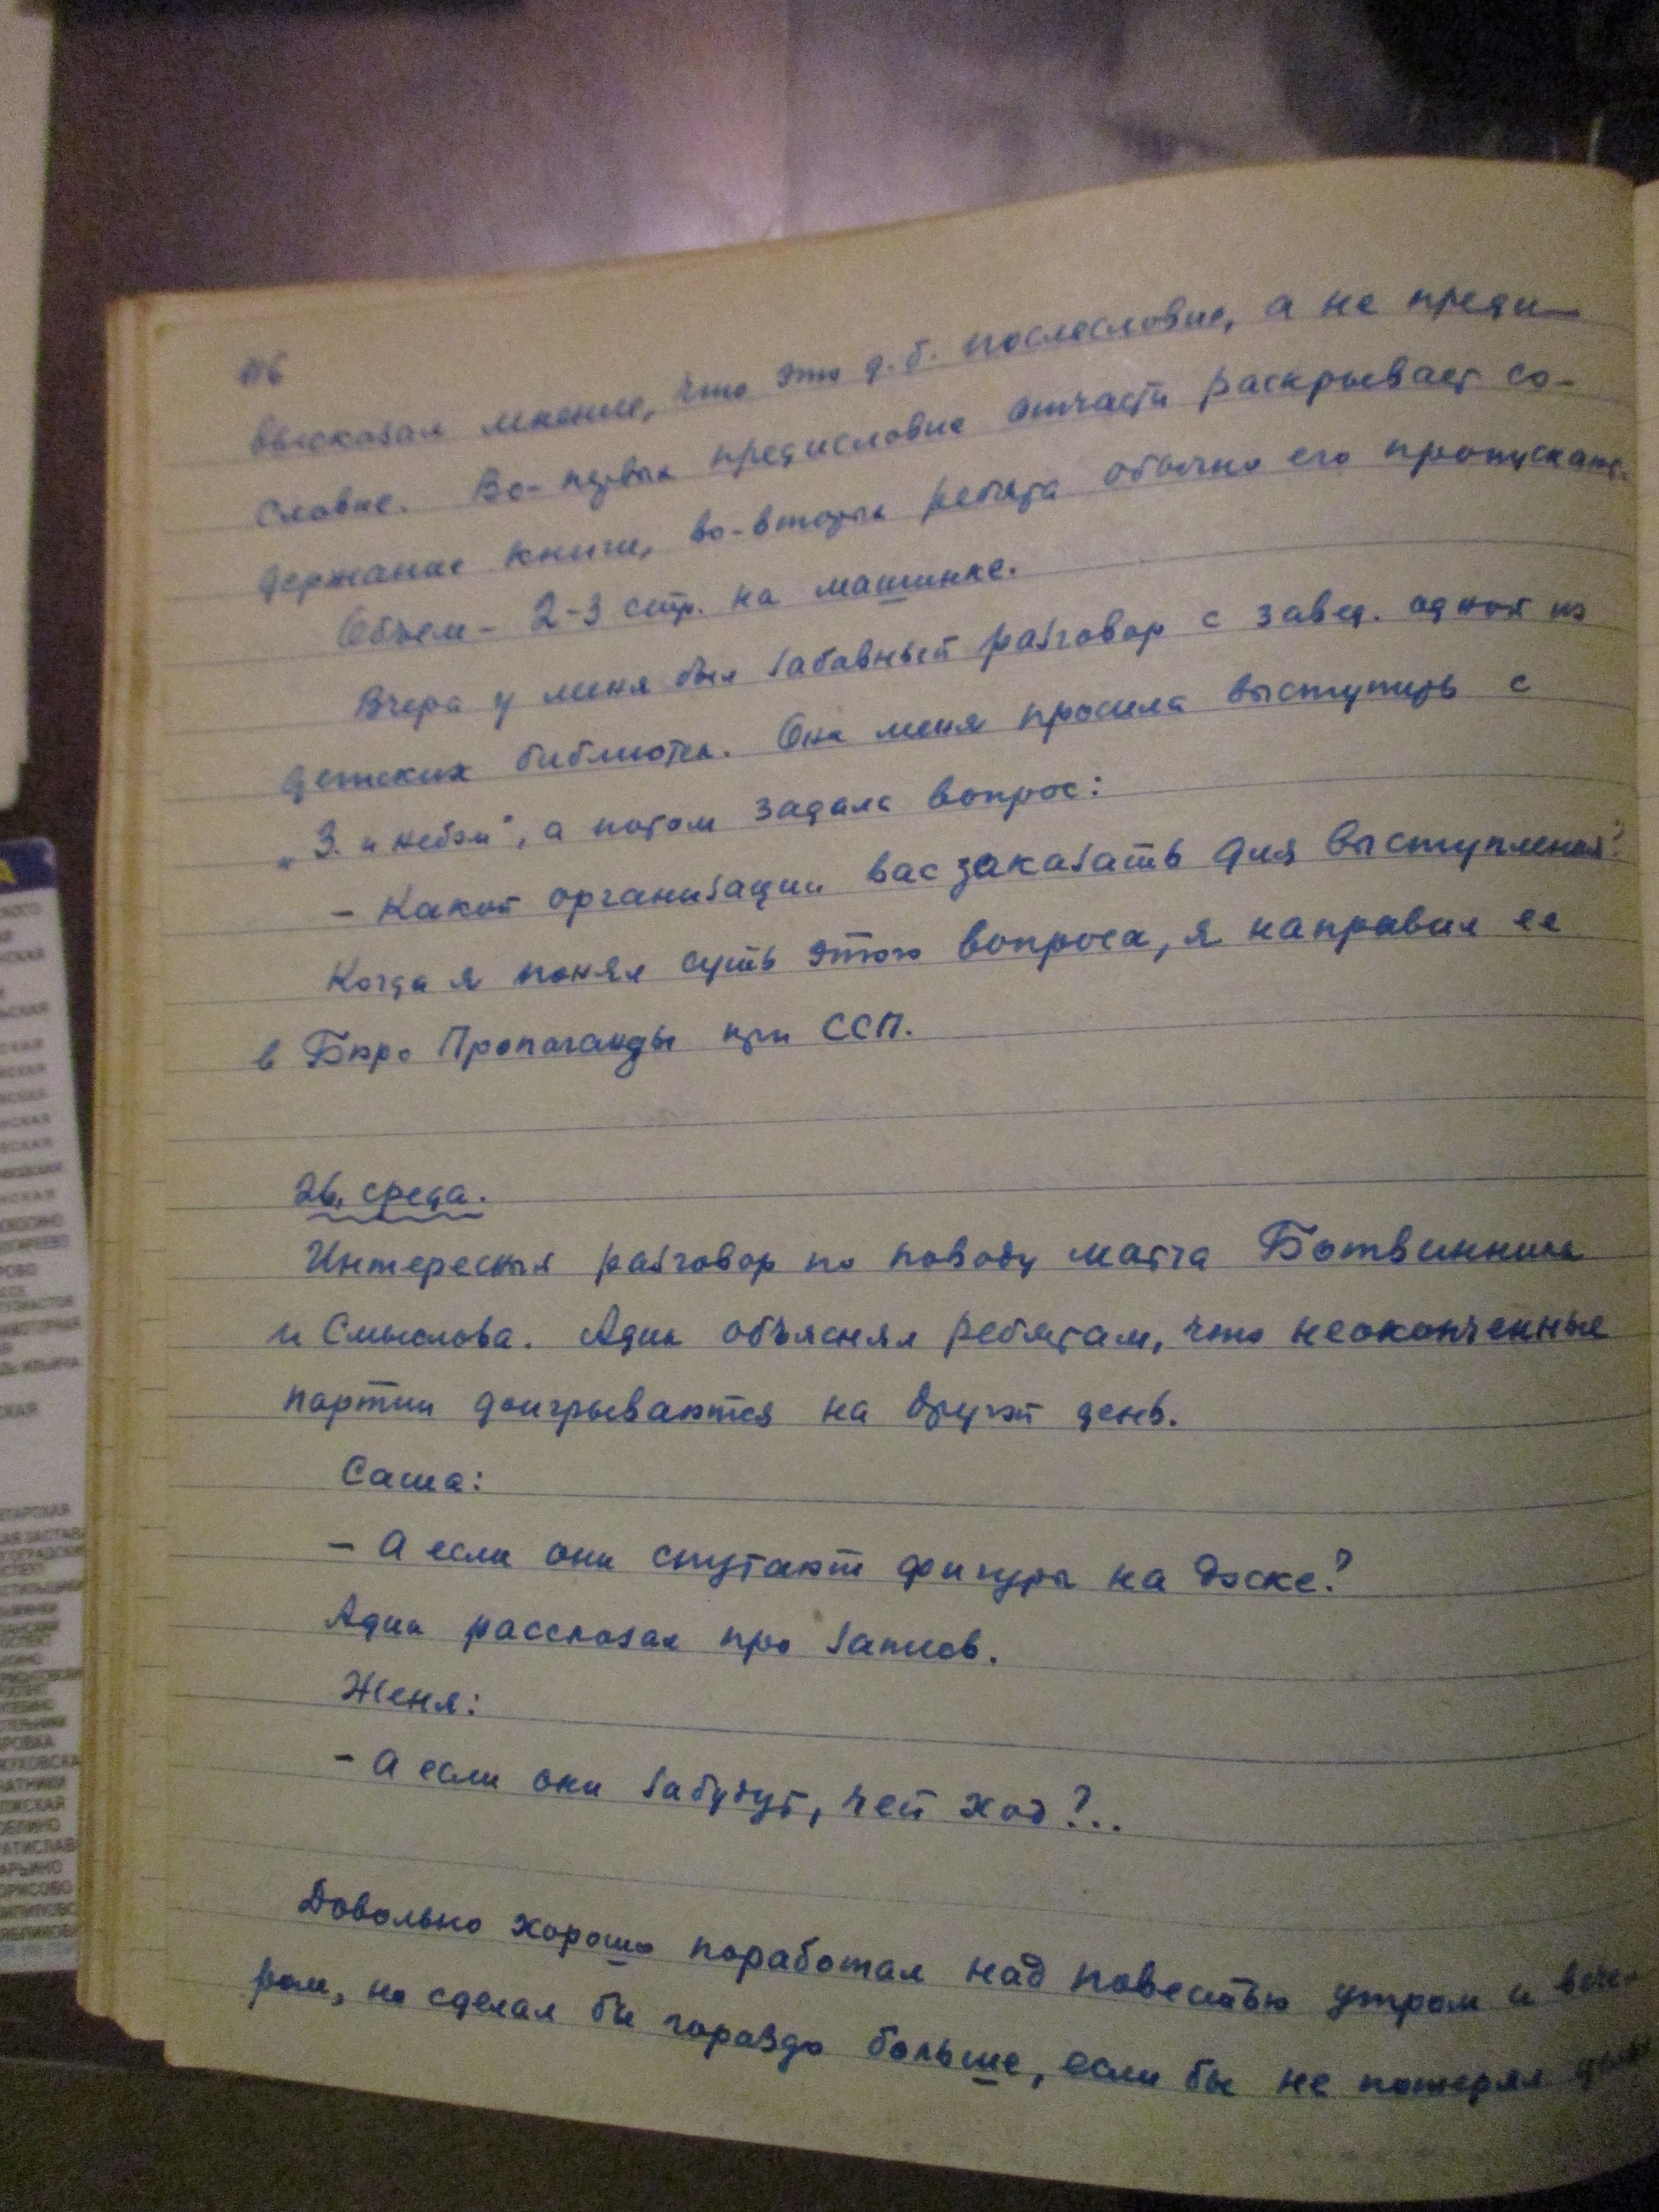 116
высказал мнение, что это д.б. послесловие, а не преди-
словие. Во-первых предисловие отчасти раскрывает со-
держание книги, во-вторых ребята обычно его пропускают.
Объем - 2-3 стр. на машинке.
Вчера у меня был забавный разговор с завед. одной из
детских библиотек. Она меня просила выступить с
„З. и небом", а потом задала вопрос:
- Какой организации вас заказать для выступления?
Когда я понял суть этого вопроса, я направил ее
в Бюро Пропаганды при ССП.
26, среда.
Интересный разговор по поводу матча Ботвинника
и Смыслова. Адик объяснял ребятам, что неоконченные
партии доигрываются на другой день.
Саша:
- А если они спутают фигуры на доске?
Адик рассказал про запись.
Женя:
- А если они забудут, чей ход?..
Довольно хорошо поработал над повестью утром и вече-
ром, но сделал бы гораздо больше, если бы не потерял
СКАЯ
ЕВО
РОВО
ЬИЧА
СКАЯ
ТАРСКАЯ
ПЕКТ
РОВКА
ЖУХОВСКА
ЧАТНИКИ
ЛЖСКАЯ
БЛИНО
АТИСЛАВ
АРЬИНО
ОРИСОВО